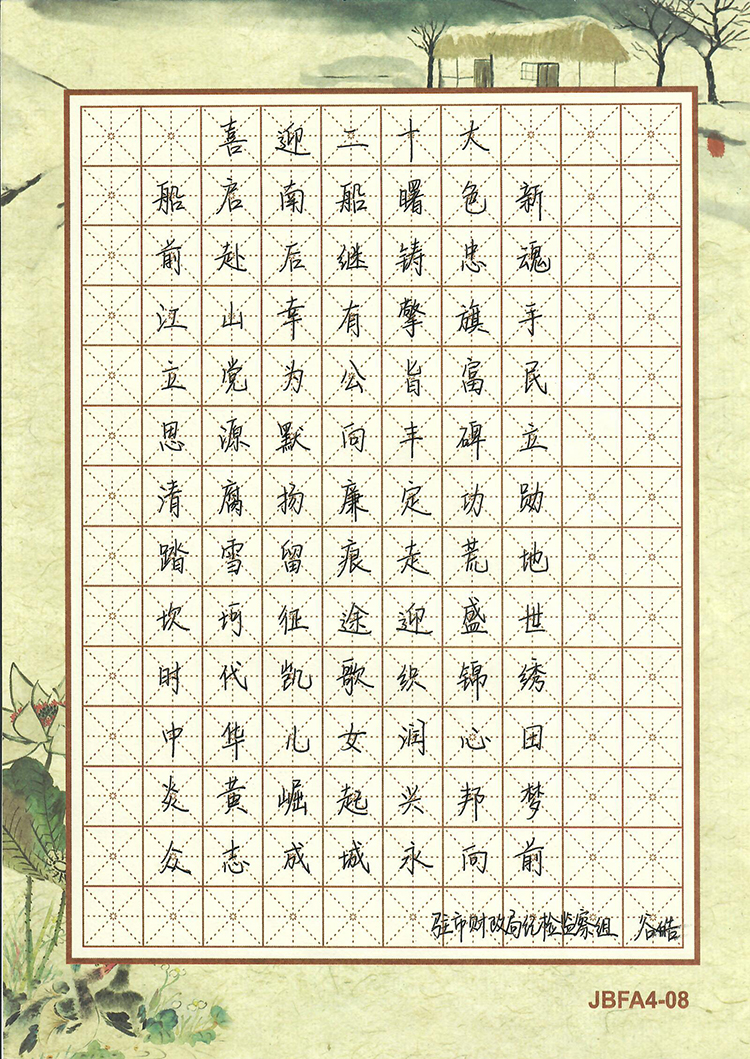 喜迎二十大
船启南船曙色新
前赴后继铸忠魂
江山幸有擎旗手
立党为公旨富民
思源默向丰碑立
清腐扬廉定功勋
踏雪留痕走荒地
坎坷征途迎盛世
时代凯歌织锦绣
中华儿女润心田
炎黄崛起兴邦梦
众志成城永向前
驻市财政局纪检监察组 谷皓
JBFA4-08